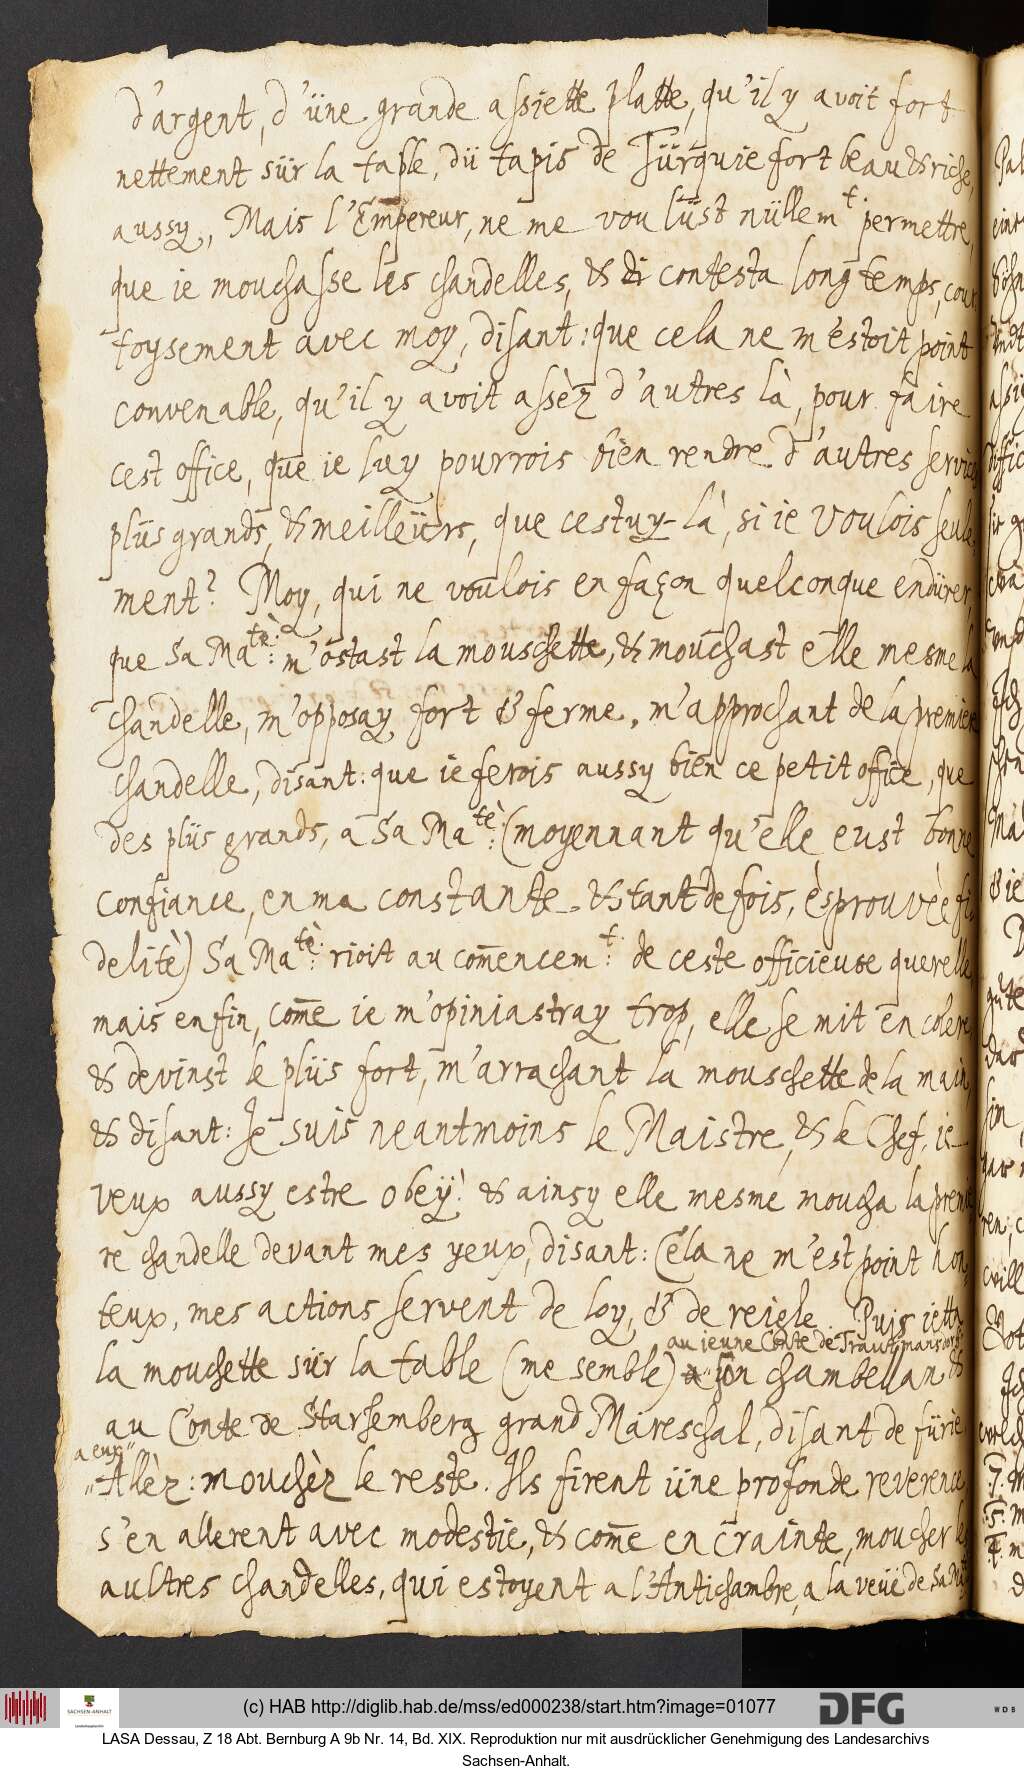 d'argent, d'üne grande assiette platte, qu'il y avoit fort
nettement sür la table, dü tapis de Türquie fort beau & riche,
aussy, Mais l'Empereur, ne me voulüst nüllem.t permettre,
que ie mouchasse les chandelles, & contesta longtemps, cour
toysement avec moy, disant: que cela ne m'estoit point
convenable, qu'il y avoit assèz d'autres là, pour faire
cest office, que ie luy pourrois bien rendre d'autres services
plüs grands, & meilleürs, que cestuy-là, si ie voulois seule,
ment? Moy, qui ne voulois en façon quelconque endürer,
que Sa Ma.tè: m'ostast la mouschette, & mouchast elle mesme la
chandelle, m'opposay fort & ferme, m'approchant de la premiere
chandelle, disant: que ie ferois aussy bien ce petit office, que
des plüs grands, a Sa Ma.tè: (moyennant qu'elle eust bonne
confiance, en ma constante & tant de fois, èsprouvèe fi
delitè) Sa Ma.tè: rioit au com̄encem.t: de ceste officieuse querelle,
mais enfin, com̄e ie m'opiniastray trop, elle se mit en colere
& devinst le plüs fort, m'arrachant la mouschette de la main,
& disant: Je suis neantmoins le Maistre, & le Chef, ie
veux aussy estre obeÿ! & ainsy elle mesme moucha la premie
re chandelle devant mes yeux, disant: Cela ne m'est point hon,
teux, mes actions servent de loy, & de reigle. Puis ietta
au jeune Conte de Trautmansdorf
la mouchette sür la table (me semble) ün chambellan &
au Conte de Starhemberg grand Mareschal, disant de fürie
a eux"
"Allèz: mouchèz le reste. Ils firent üne profonde reverence,
s'en allerent avec modestie, & com̄e en crainte, moucher les
aultres chandelles, qui estoyent a l'Antichambre, a la veüe de Sa Ma.tè
(c) HAB http://diglib.hab.de/mss/ed000238/start.htm?image=01077
SACHSEN-ANHALT
DFG
WDB
LASA Dessau, Z 18 Abt. Bernburg A 9b Nr. 14, Bd. XIX. Reproduktion nur mit ausdrücklicher Genehmigung des Landesarchivs
Sachsen-Anhalt.